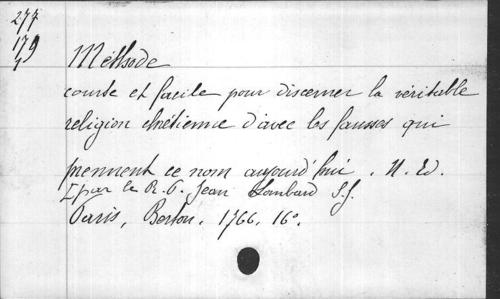 277
179
7
Méthode
courte et facile pour discerner la véritable
religion chrétienne d'avec les fausses qui
prennent ce nom aujourd'hui. N. Ed.
[par le R. P. Jean Lombard S.J.
Paris, Berton, 1766, 16°.